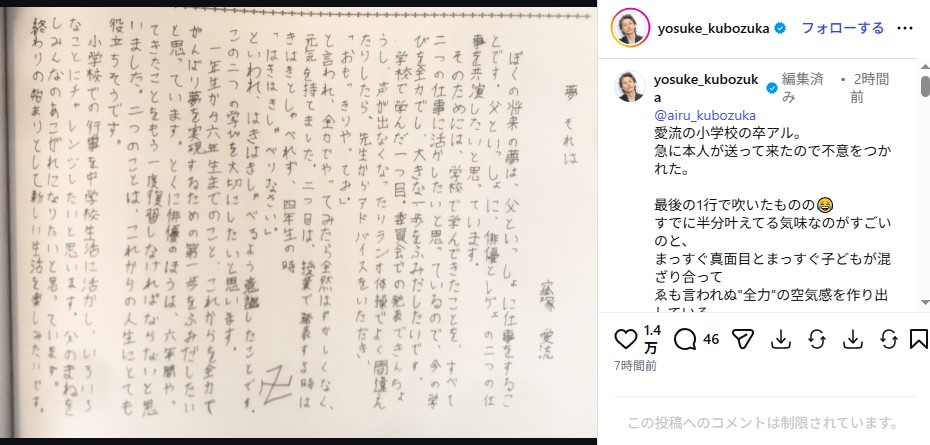 夢 それは
窪塚 愛流
ぼくの将来の夢は、父といっしょに仕事をするこ
とです。父といっしょに、俳優とレゲェの二つの仕
事を共演したいと思っています。
そのためには、学校で学んできたことを、すべて
二つの仕事に活かしたいと思っているので、今の学
びを全力でし、大きな一歩をふみだしたいです。
学校で学んだ一つ目、委員会での発表できんちょ
うし、声が出なくなったりラジオ体操でよく間違え
たりしたら、先生からアドバイスをいただき、
「おもっきりやってみ」
と言われ、全力でやってみたら全然はずかしくなく、
元気を持てました。二つ目は、授業で発表する時は
きはきとしゃべれず、四年生の時
「はきはきしゃべりなさい」
といわれ、はきはきしゃべるよう意識したことです。
この二つの学びを大切にしたいと思います。
卍
一年生から六年生までのこと、これからを全力で
がんばり夢を実現するための第一歩をふみだしたい
と思っています。とくに俳優のほうは、六年間や
てきたことをもう一度復習しなければならないと思
いました。二つのことは、これからの人生にとても
役立ちそうです。
小学校での行事を中学校生活に活かし、いろいろ
なことにチャレンジしたいと思います。父のまねを
しみんなのあこがれになりたいと思っています。
終わりの始まりとして新しい生活を楽しみたいです。
yosuke_kubozuka フォローする
yosuke_kubozuk
a
編集済
み
• 2時間
前
@airu_kubozuka
愛流の小学校の卒アル。
急に本人が送って来たので不意をつか
れた。
最後の1行で吹いたものの😂
すでに半分叶えてる気味なのがすごい
のと、
まっすぐ真面目とまっすぐ子どもが混
ざり合って
ゑも言われぬ"全力"の空気感を作り出
している
1.4
万
46
7時間前
この投稿へのコメントは制限されています。